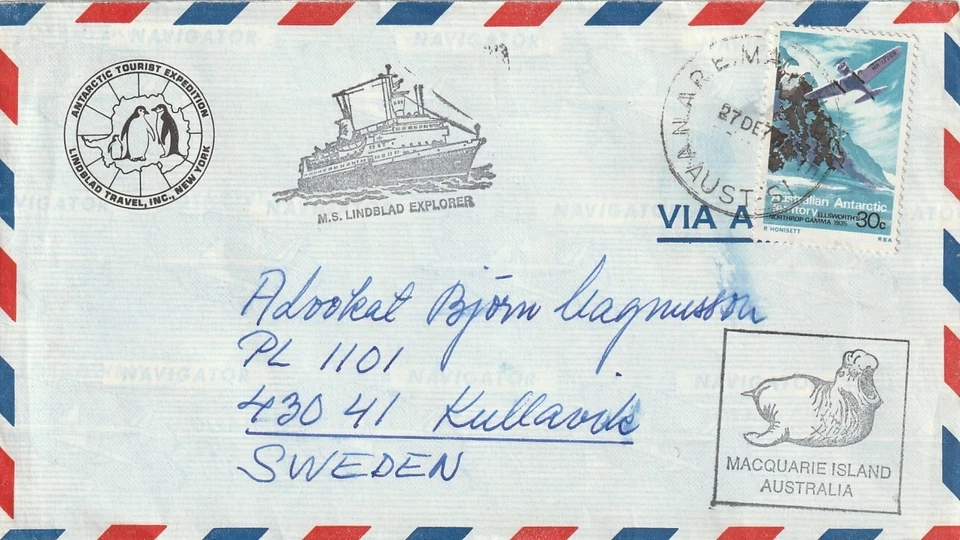 ANTARCTIC TOURIST EXPEDITION
LINDBLAD TRAVEL, INC., NEW YORK
M.S. LINDBLAD EXPLORER
ANARE
27 DE
AUST
Australian Antarctic
Territory ELLSWORTH'S
NORTHROP-GAMMA 1935 30c
R HONISETT RBA
VIA A
Advokat Björn Magnusson
PL 1101
430 41 Kullavik
SWEDEN
MACQUARIE ISLAND
AUSTRALIA
NAVIGATOR
NAVIGATOR
NAVIGATOR
NAVIGATOR
NAVIGATOR